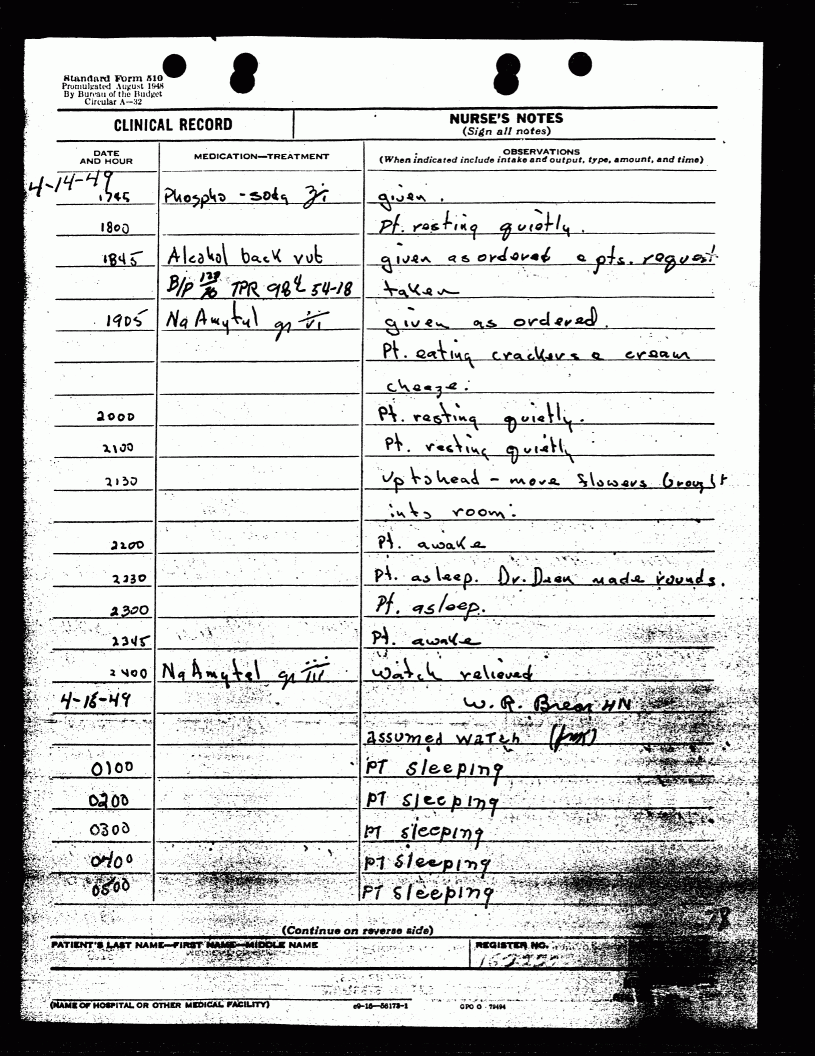 Standard Form 510
Promulgated August 1948
By Bureau of the Budget
Circular A—32
CLINICAL RECORD
NURSE'S NOTES
(Sign all notes)
DATE
AND HOUR
MEDICATION—TREATMENT
OBSERVATIONS
(When indicated include intake and output, type, amount, and time)
4-14-49
1745 Phospho-soda ℥i given.
1800 Pt. resting quietly.
1845 Alcohol back rub given as ordered c pts. request
B/P TPR 98⁴ 54-18 taken
1905 Na Amytul gr vi given as ordered.
Pt. eating crackers c cream
cheeze.
2000 Pt. resting quietly.
2100 Pt. resting quietly
2130 Up to head - move flowers brought
into room.
2200 Pt. awake
2230 Pt. asleep. Dr. Deen made rounds.
2300 Pt. asleep.
2345 Pt. awake
2400 Na Amytel gr iii Watch relieved
4-15-49 W. R. HN
assumed watch
0100 PT sleeping
0200 PT sleeping
0300 PT sleeping
0400 PT sleeping
0500 PT sleeping
78
(Continue on reverse side)
PATIENT'S LAST NAME—FIRST NAME—MIDDLE NAME
REGISTER NO.
(NAME OF HOSPITAL OR OTHER MEDICAL FACILITY)
c9—16—56173-1
GPO O - 79494